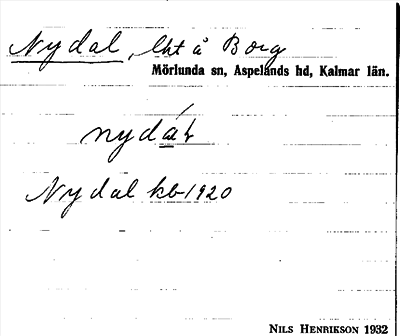 Nydal, lht å Borg
Mörlunda sn, Aspelands hd, Kalmar län.
nydál
Nydal kb 1920
NILS HENRIKSON 1932